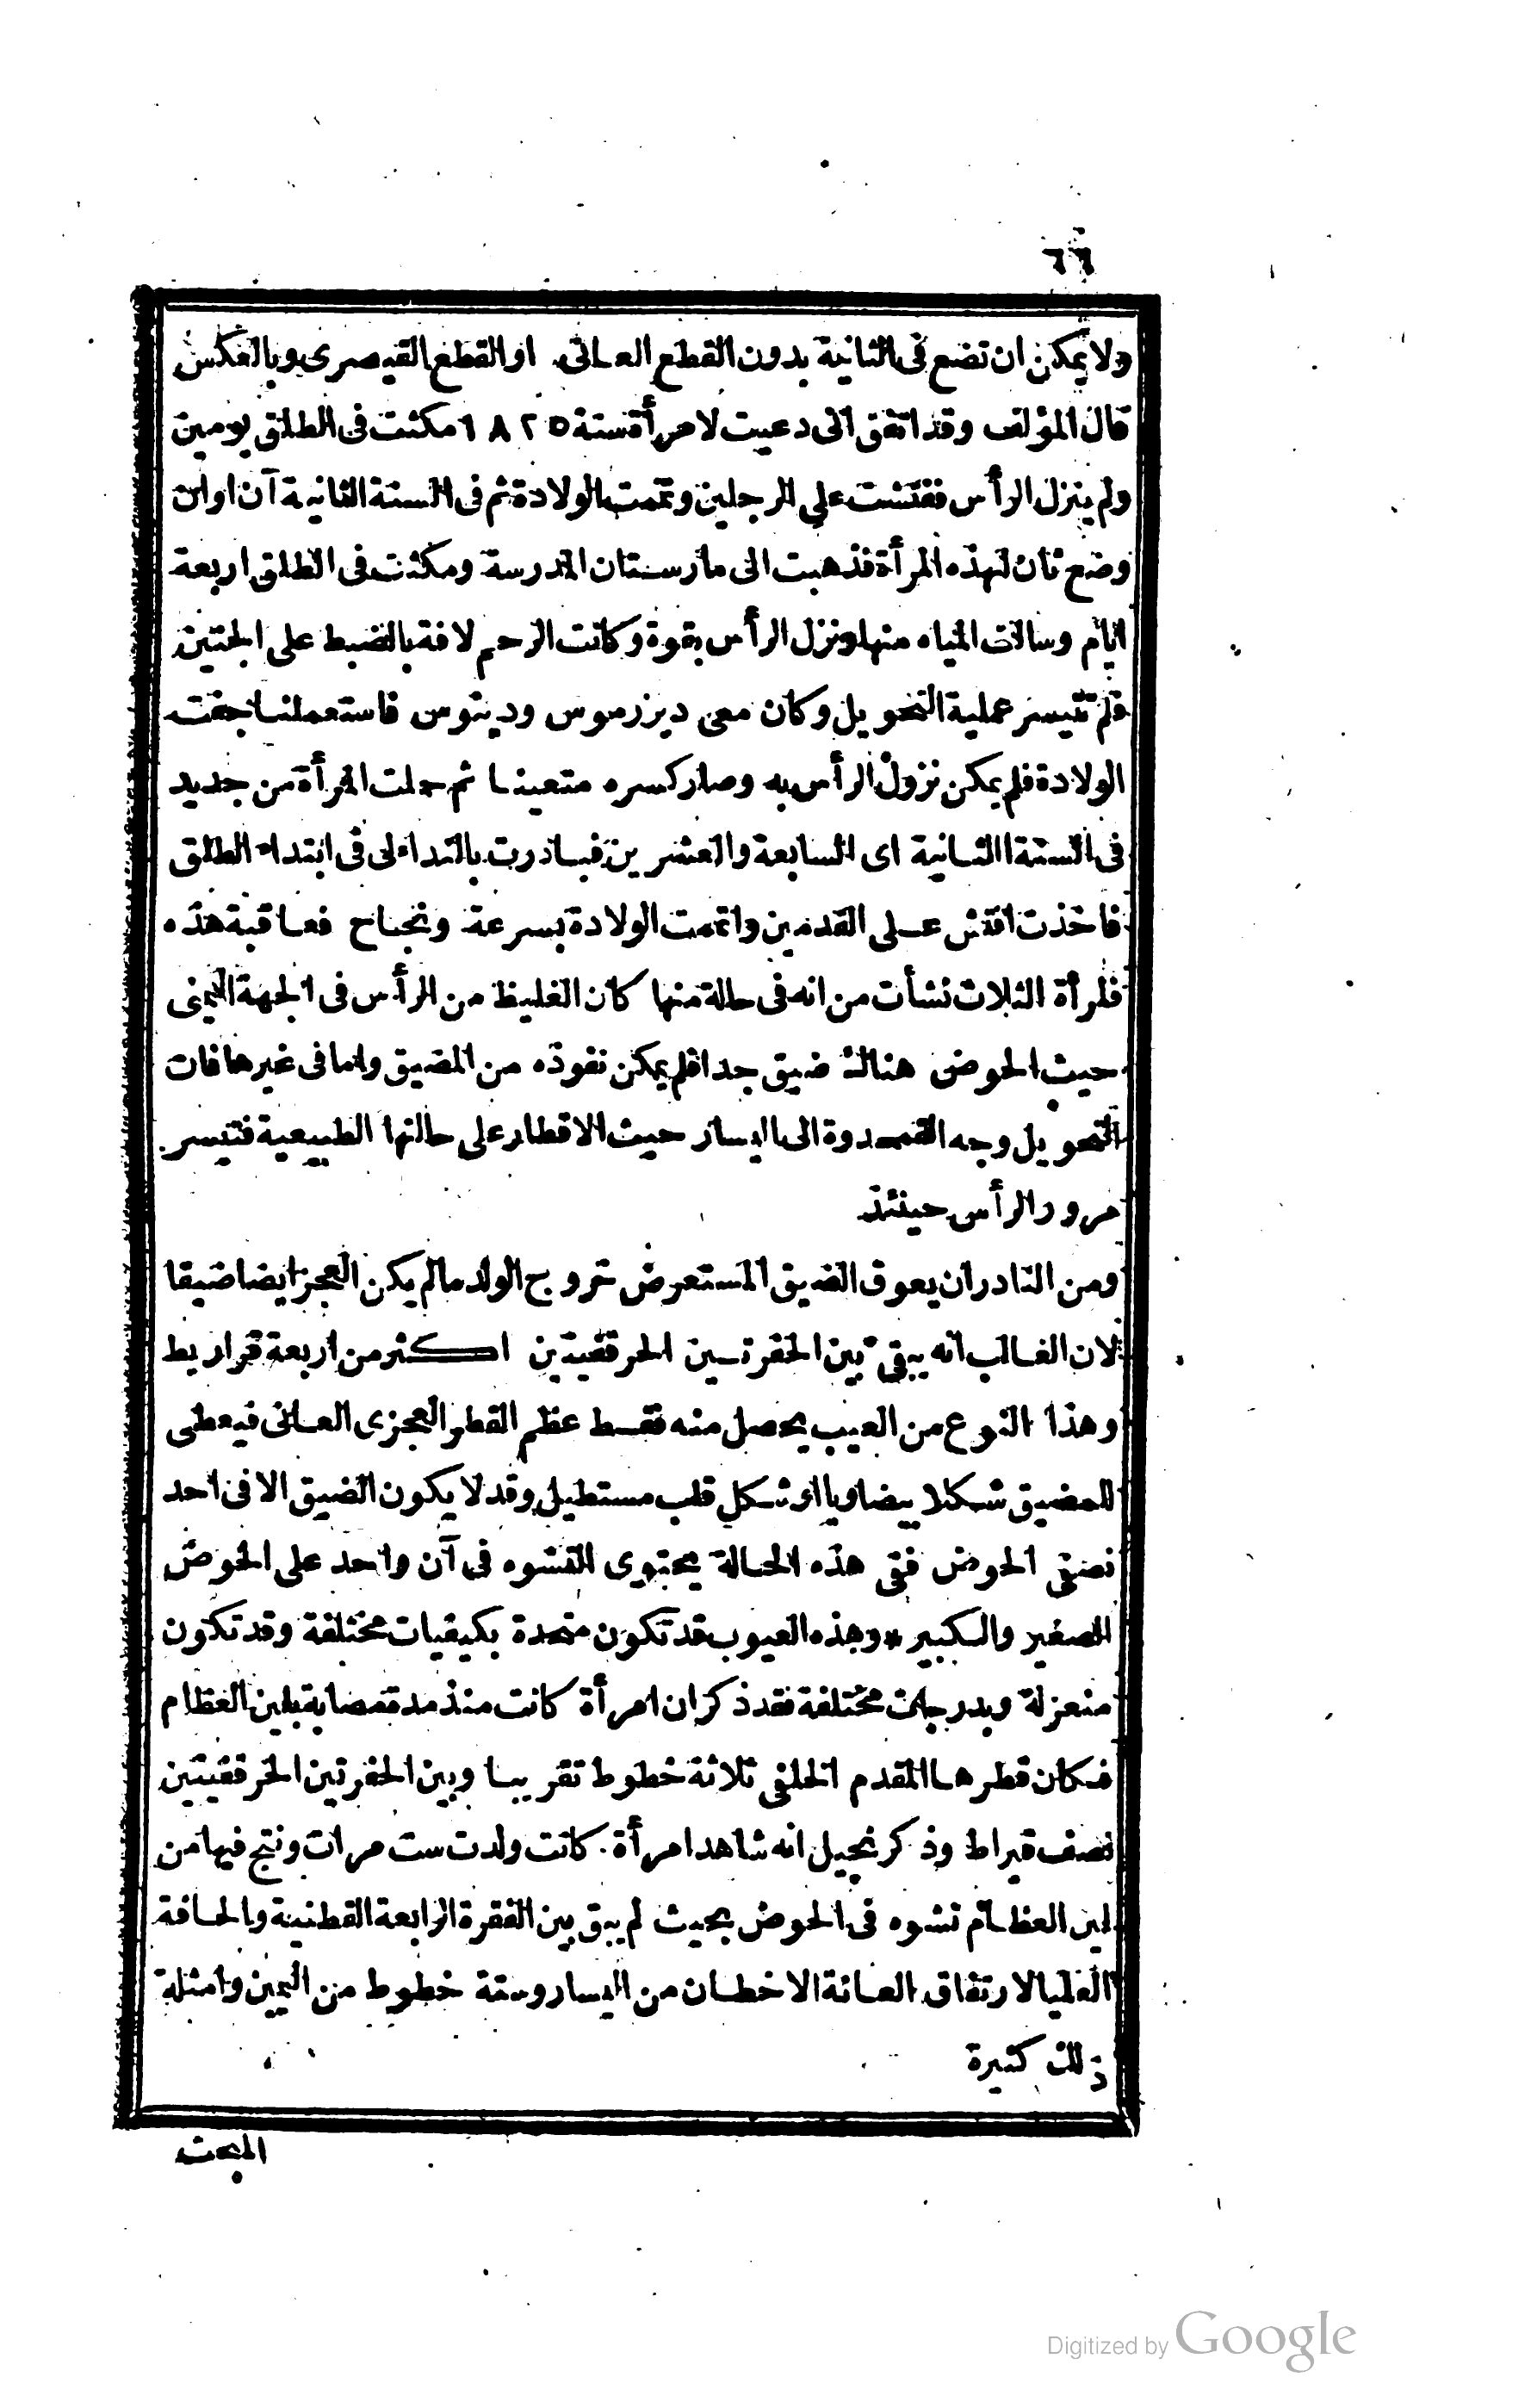 ٦٦
ولا يمكن ان تضع فى الثانية بدون القطع العانى او القطع القيصرى وبالعكس
قال المؤلف وقد اتفق انى دعيت لامرأة سنة ١٨٢٥ مكثت فى الطلق يومين
ولم ينزل الرأس ففتشت على الرجلين وتممت الولادة ثم فى السنة الثانية آن اوان
وضع ثان لهذه المرأة فذهبت الى مارستان المدرسة ومكثت فى الطلق اربعة
ايام وسالت المياه منها ونزل الرأس بقوة وكانت الرحم لافة بالضبط على الجنين
فلم تتيسر عملية التحويل وكان معى ديزرموس وديتوس فاستعملنا جفت
الولادة فلم يمكن نزول الرأس به وصار كسره متعينا ثم حملت المرأة من جديد
فى السنة الثانية اى السابعة والعشرين فبادرت بالنداء لى فى ابتداء الطلق
فاخذت افتش على القدمين واتممت الولادة بسرعة ونجاح فعاقبة هذه
المرأة الثلاث نشأت من انه فى حالة منها كان الغليظ من الرأس فى الجهة اليمنى
حيث الحوض هناك ضيق جدا فلم يمكن نفوذه من المضيق واما فى غيرها فان
التحويل وجه القمحدوة الى اليسار حيث الاقطار على حالتها الطبيعية فتيسر
مرور الرأس حينئذ
ومن النادر ان يعوق الضيق المستعرض خروج الولد مالم يكن العجز ايضا ضيقا
لان الغالب انه يبقى بين الحفرتين الحرقفيتين اكثر من اربعة قراريط
وهذا النوع من العيب يحصل منه فقط عظم القطر العجزى العانى فيعطى
للمضيق شكلا بيضاويا او شكل قلب مستطيل وقد لا يكون الضيق الا فى احد
نصفى الحوض ففى هذه الحالة يحتوى التشوه فى آن واحد على الحوض
الصغير والكبير * وهذه العيوب قد تكون متحدة بكيفيات مختلفة وقد تكون
منعزلة وبدرجات مختلفة فقد ذكر ان امرأة كانت منذ مدة مصابة بلين العظام
فكان قطرها المقدم الخلفى ثلاثة خطوط تقريبا وبين الحفرتين الحرقفيتين
نصف قيراط وذكر نجيل انه شاهد امرأة كانت ولدت ست مرات ونتج فيها من
لين العظام تشوه فى الحوض بحيث لم يبق بين الفقرة الرابعة القطنية والحافة
العليا لارتفاق العانة الاخطان من اليسار وستة خطوط من اليمين وامثلة
ذلك كثيرة
المبحث
Digitized by Google